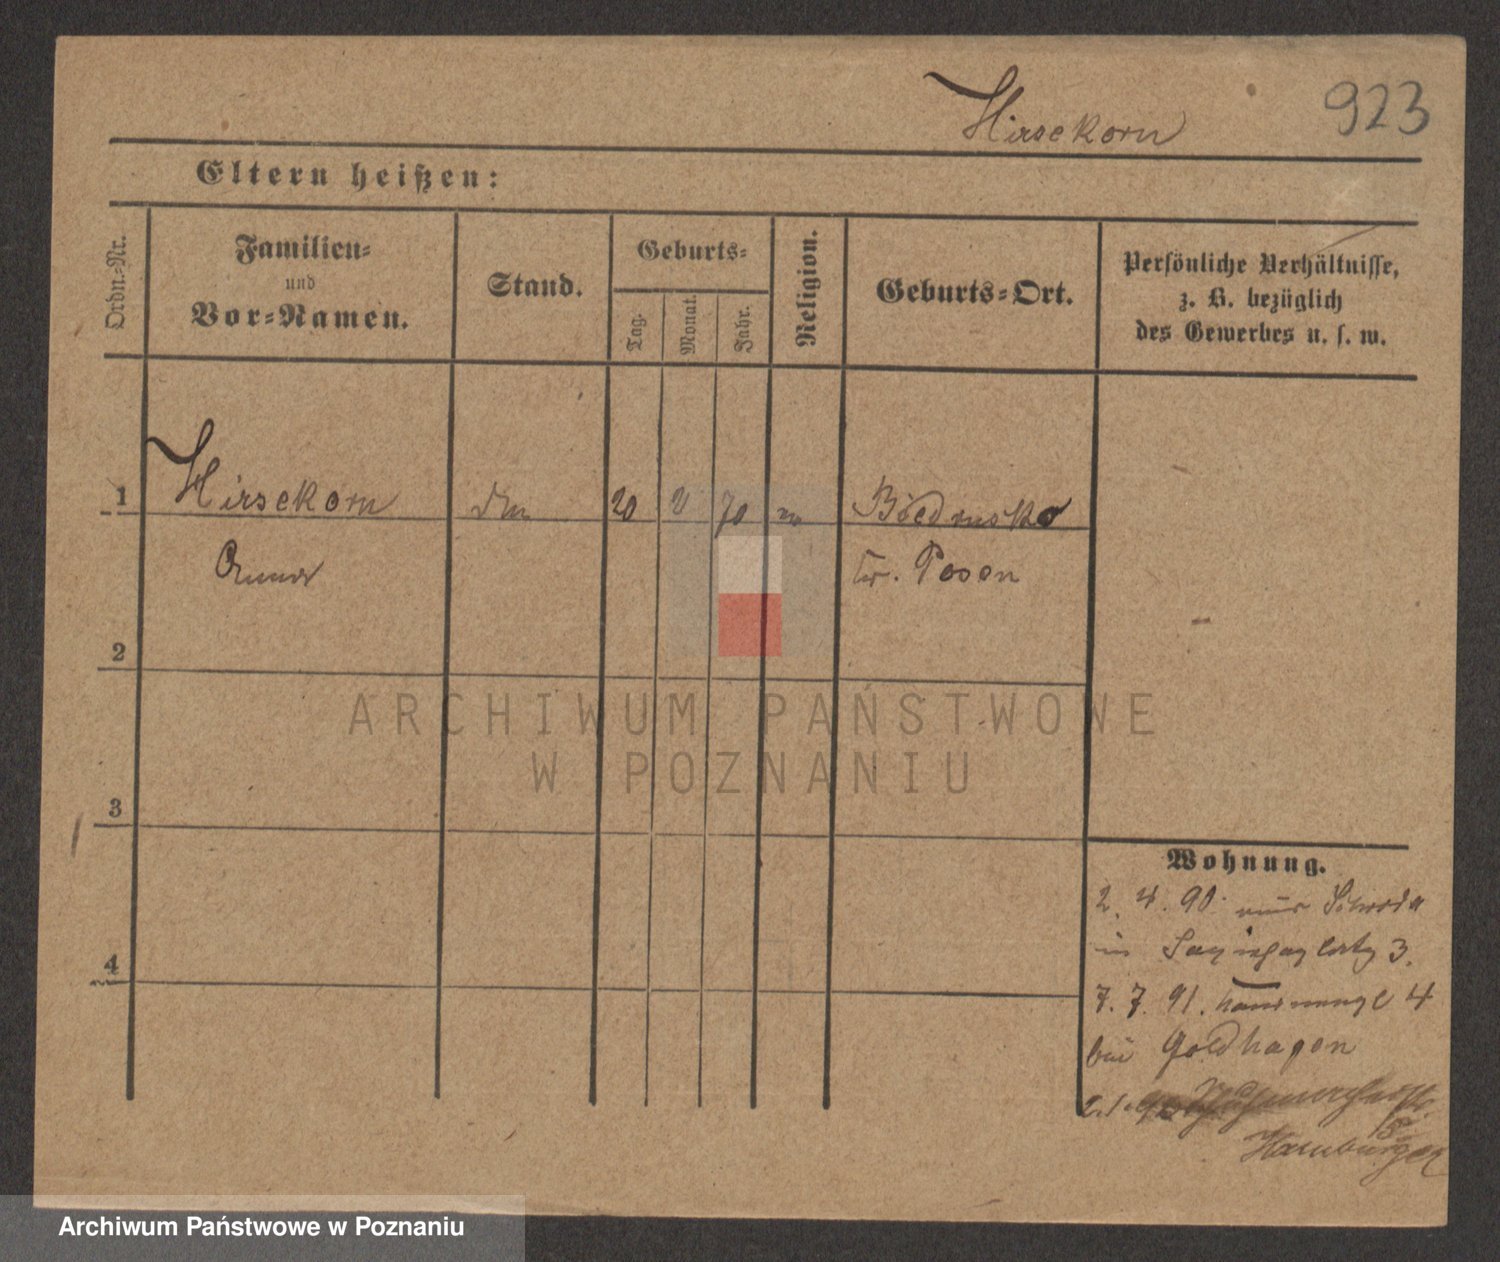 Hirsekorn 923
Eltern heißen:
Ordn.=Nr.
Familien=
und
Vor=Namen.
Stand.
Geburts=
Tag.
Monat.
Jahr.
Religion.
Geburts=Ort.
Persönliche Verhältnisse,
z. B. bezüglich
des Gewerbes u. s. w.
1 Hirsekorn 20 2 70 Biedrusko
Kr. Posen
2
ARCHIWUM PAŃSTWOWE
W POZNANIU
3
Wohnung.
2. 4. 90. aus Schroda
in Sapiehaplatz 3.
4
7. 7. 91. 4
bei Goldhagen
Hamburger
Archiwum Państwowe w Poznaniu